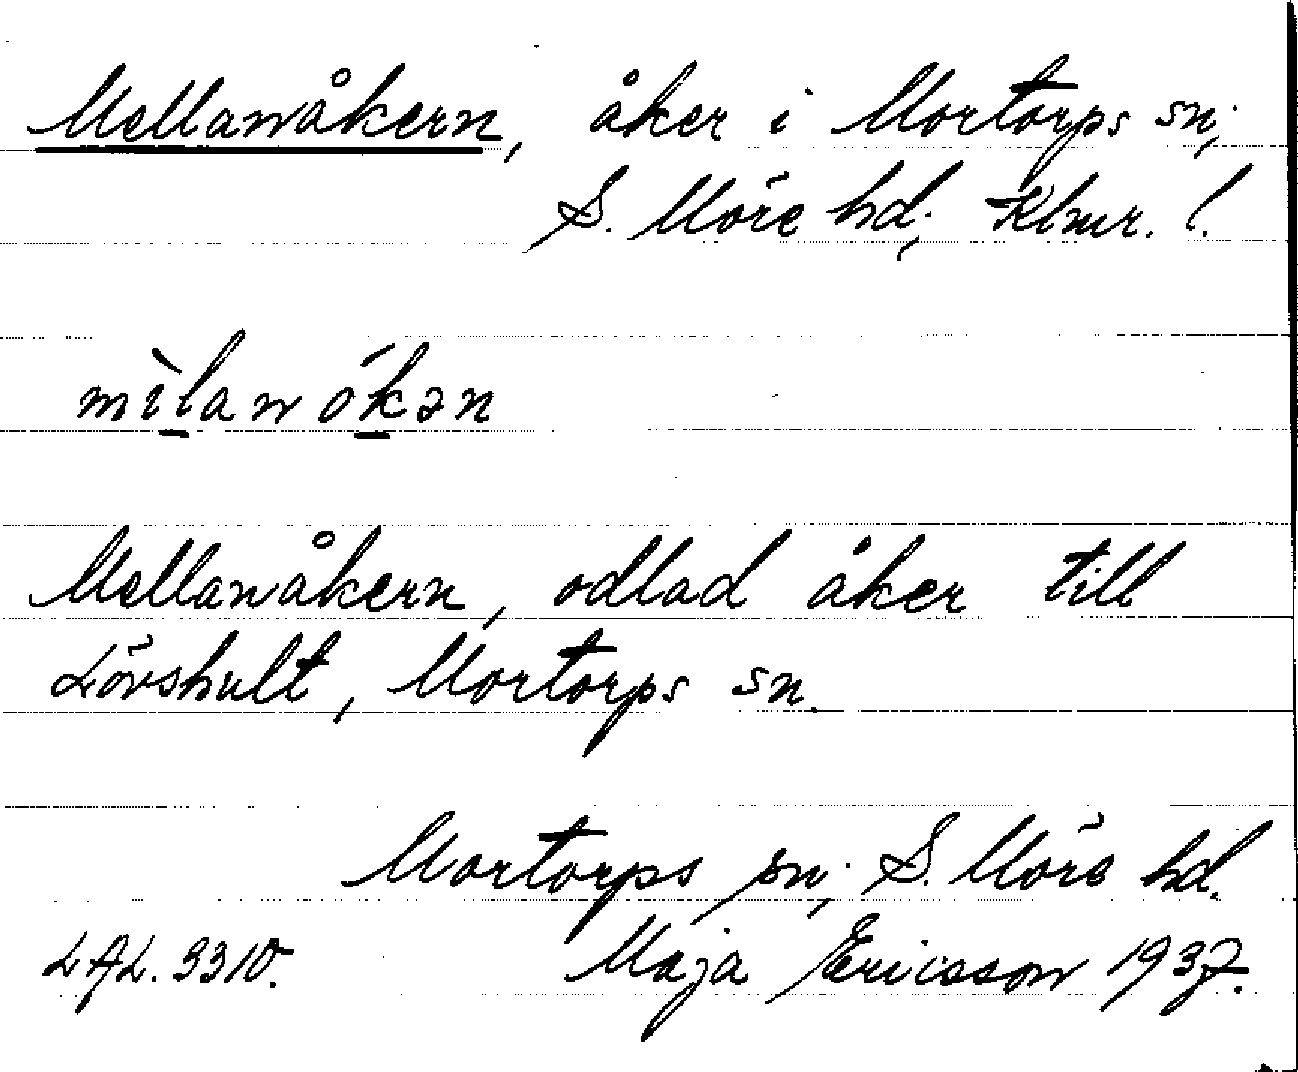 Mellanåkern, åker i Mortorps sn;
S. Möre hd; Klmr. l.
mìlanókən
Mellanåkern, odlad åker till
Lövshult, Mortorps sn.
Mortorps sn; S. Möre hd.
LAL. 3310. Maja Ericsson 1937.